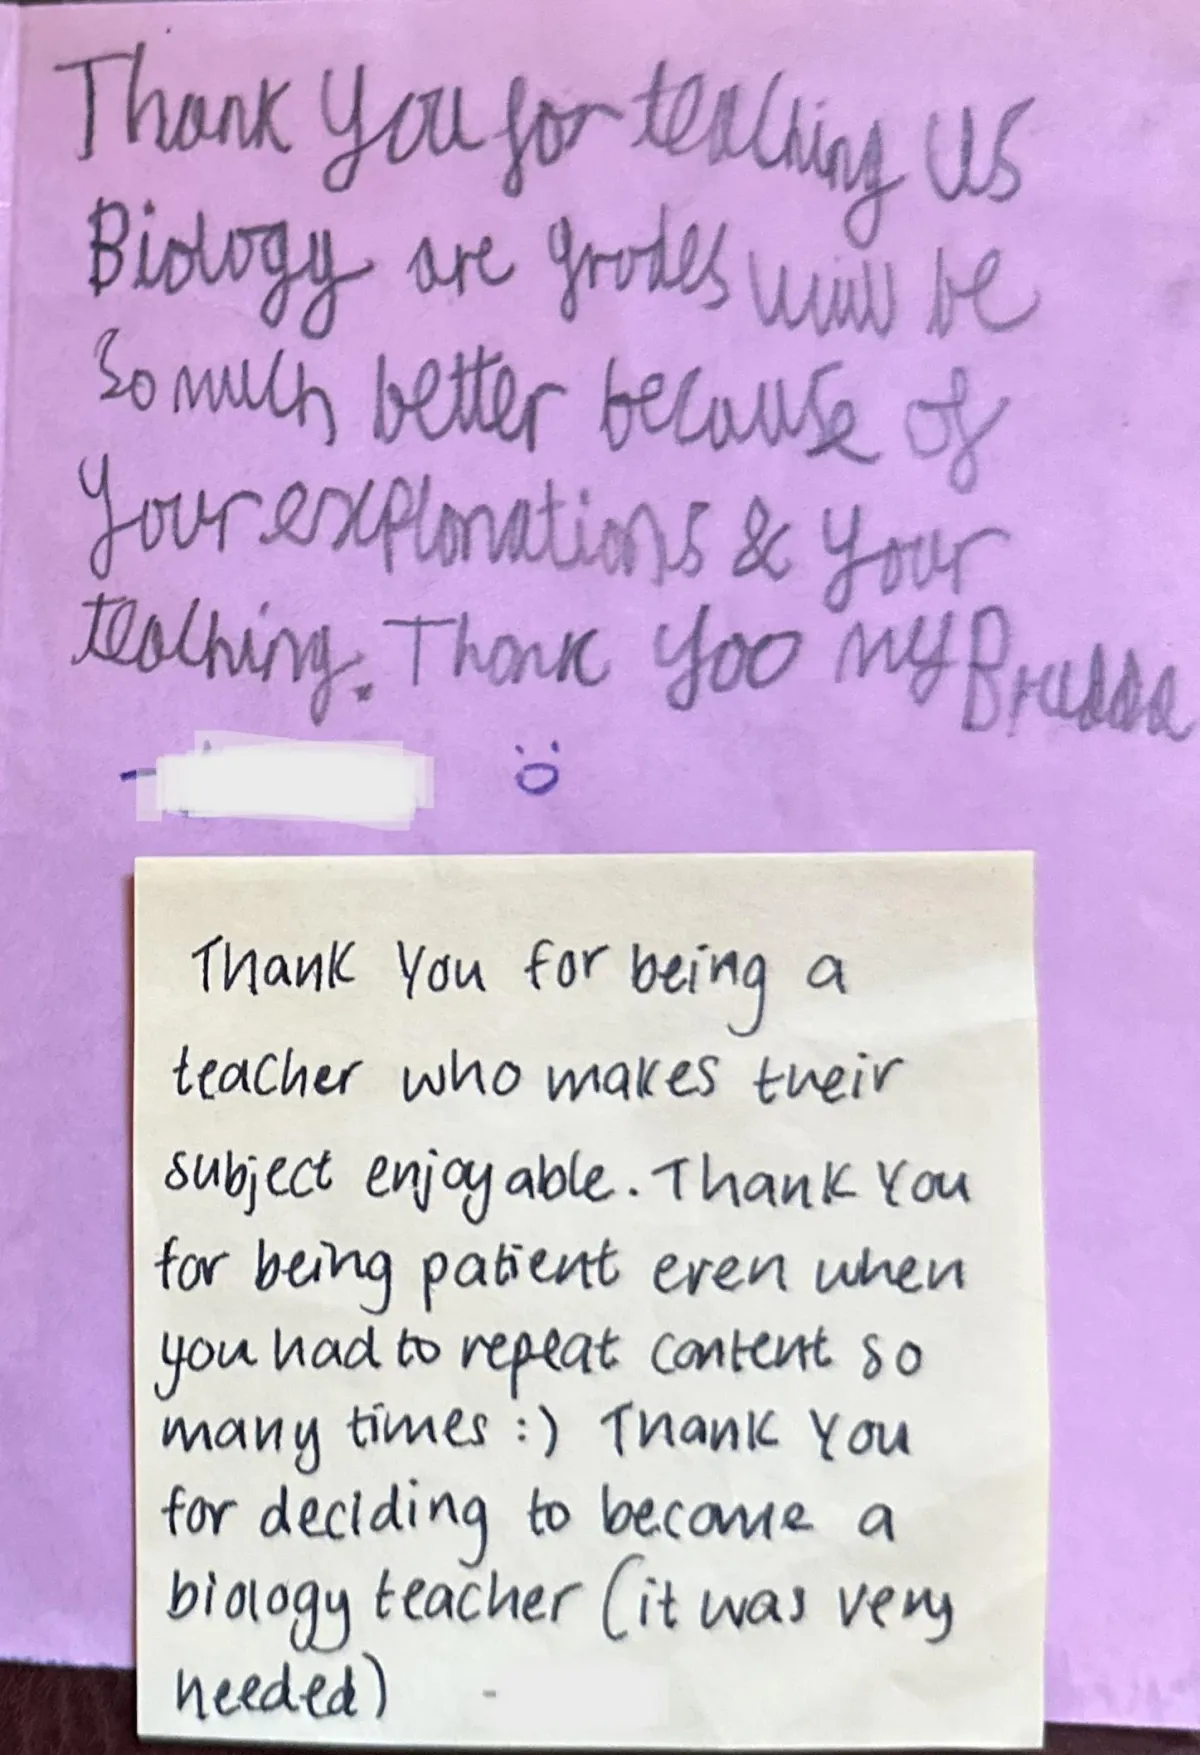 Thank You for teaching us
Biology are grades will be
So much better because of
Your explanations & your
teaching. Thank Yoo my Brudda
Thank You for being a
teacher who makes their
subject enjoyable. Thank You
for being patient even when
you had to repeat content so
many times :) Thank You
for deciding to become a
biology teacher (it was very
needed) -